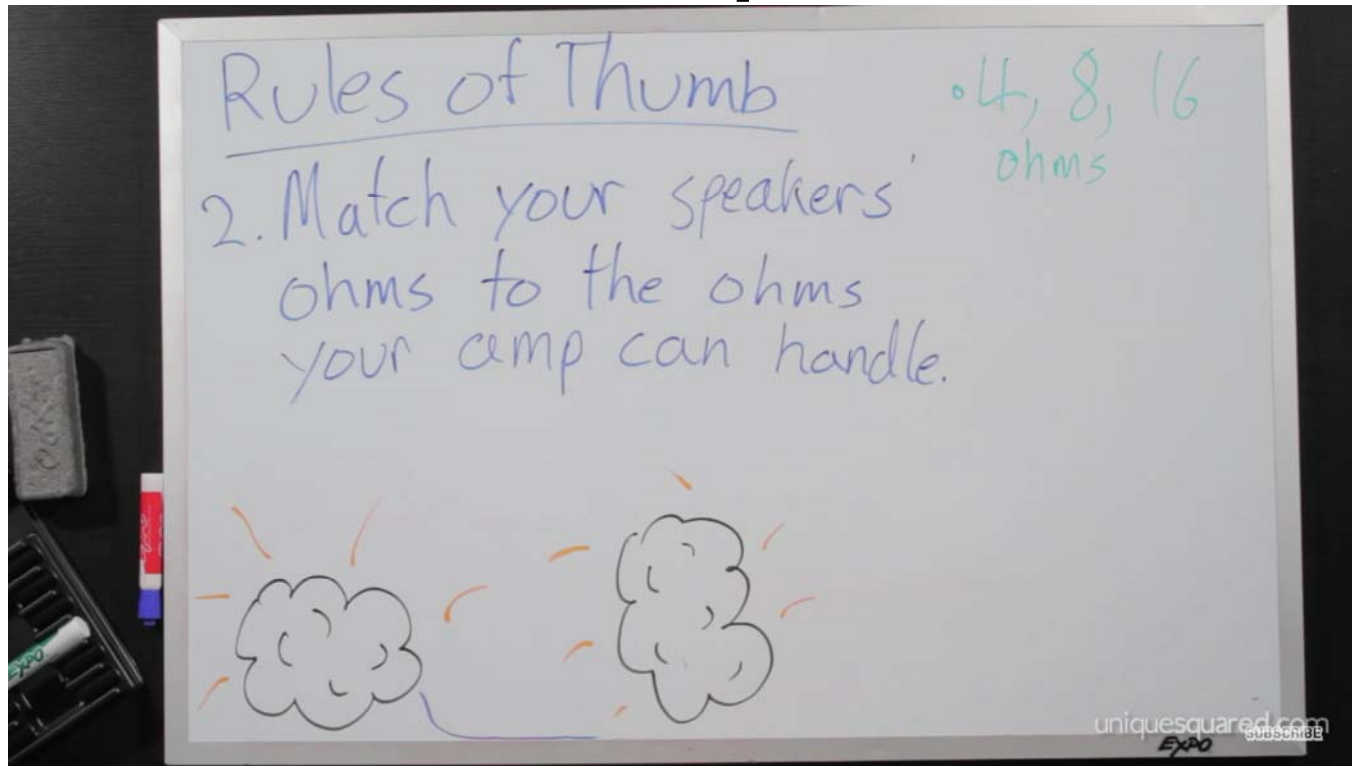 Rules of Thumb
·4, 8, 16
ohms
2. Match your speakers'
ohms to the ohms
your amp can handle.
EXPO
EXPO
uniquesquared.com
SUBSCRIBE
EXPO